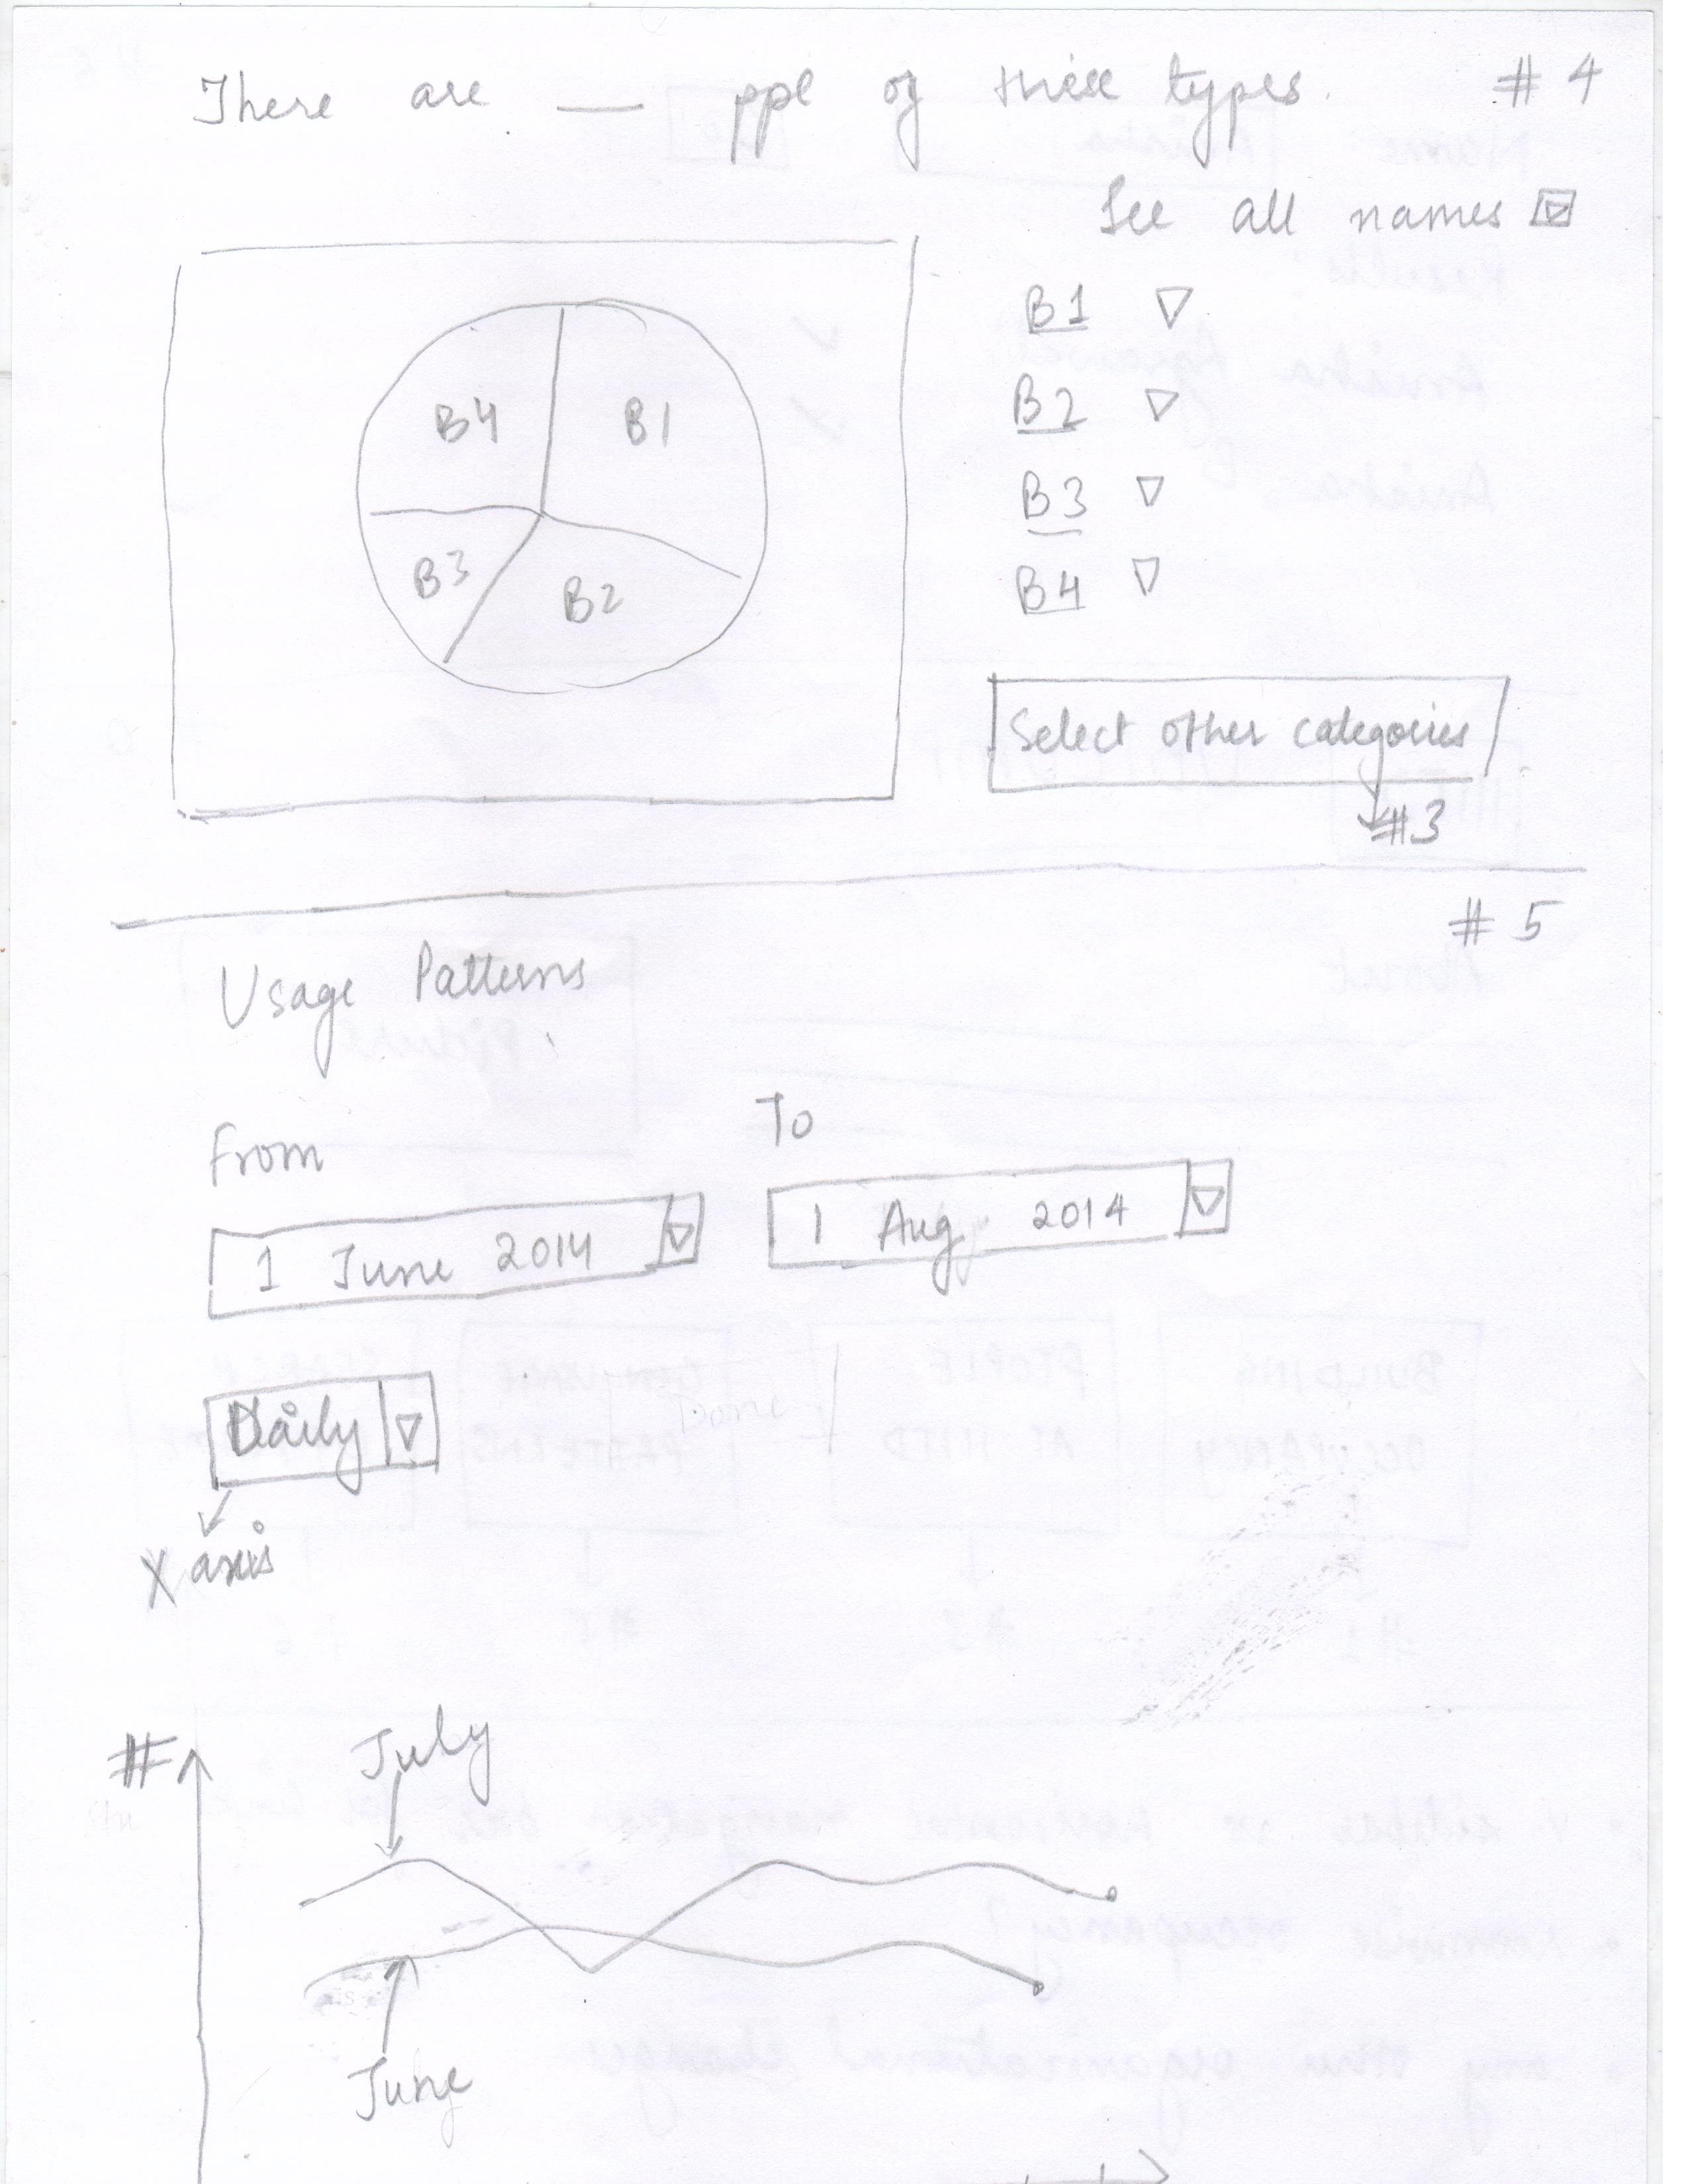 There are __ ppl of these types. # 4
See all names
B4 B1
B3 B2
B1
B2
B3
B4
Select other categories
#3
# 5
Usage Patterns
From To
1 June 2014
1 Aug 2014
Daily
X axis
#
July
June